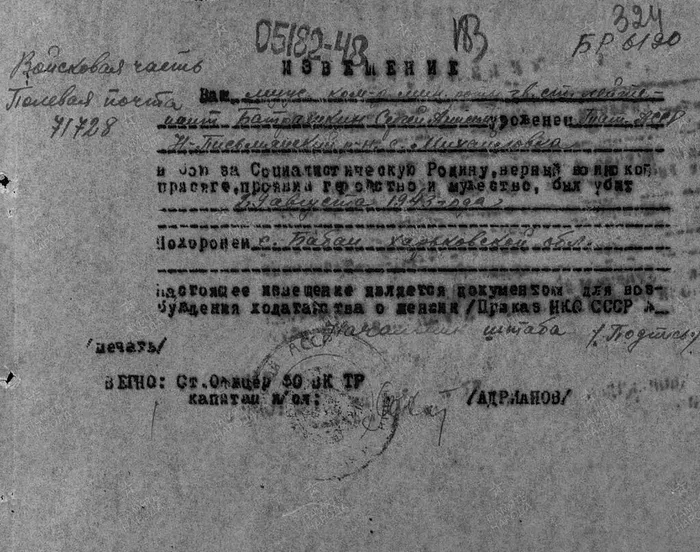 324
05182-48
БР 6120
Войсковая часть
Полевая почта
71728
ИЗВЕЩЕНИЕ
Ваш муж ком-р мин. роты гв. ст. лейте-
нант Батрашкин Сергей уроженец Тат. АССР
Н-Письмянский р-н с. Михайловка
в бою за Социалистическую Родину, верный воинской
присяге, проявив геройство и мужество, был убит
29 августа 1943 года
Похоронен с. Бабаи харьковской обл.
Настоящее извещение является документом для воз-
буждения ходатайства о пенсии /Приказ НКО СССР №
Начальник штаба /Подпись/
/печать/
ВЕРНО: Ст.Офицер ВК ТР
капитан /АДРИАНОВ/